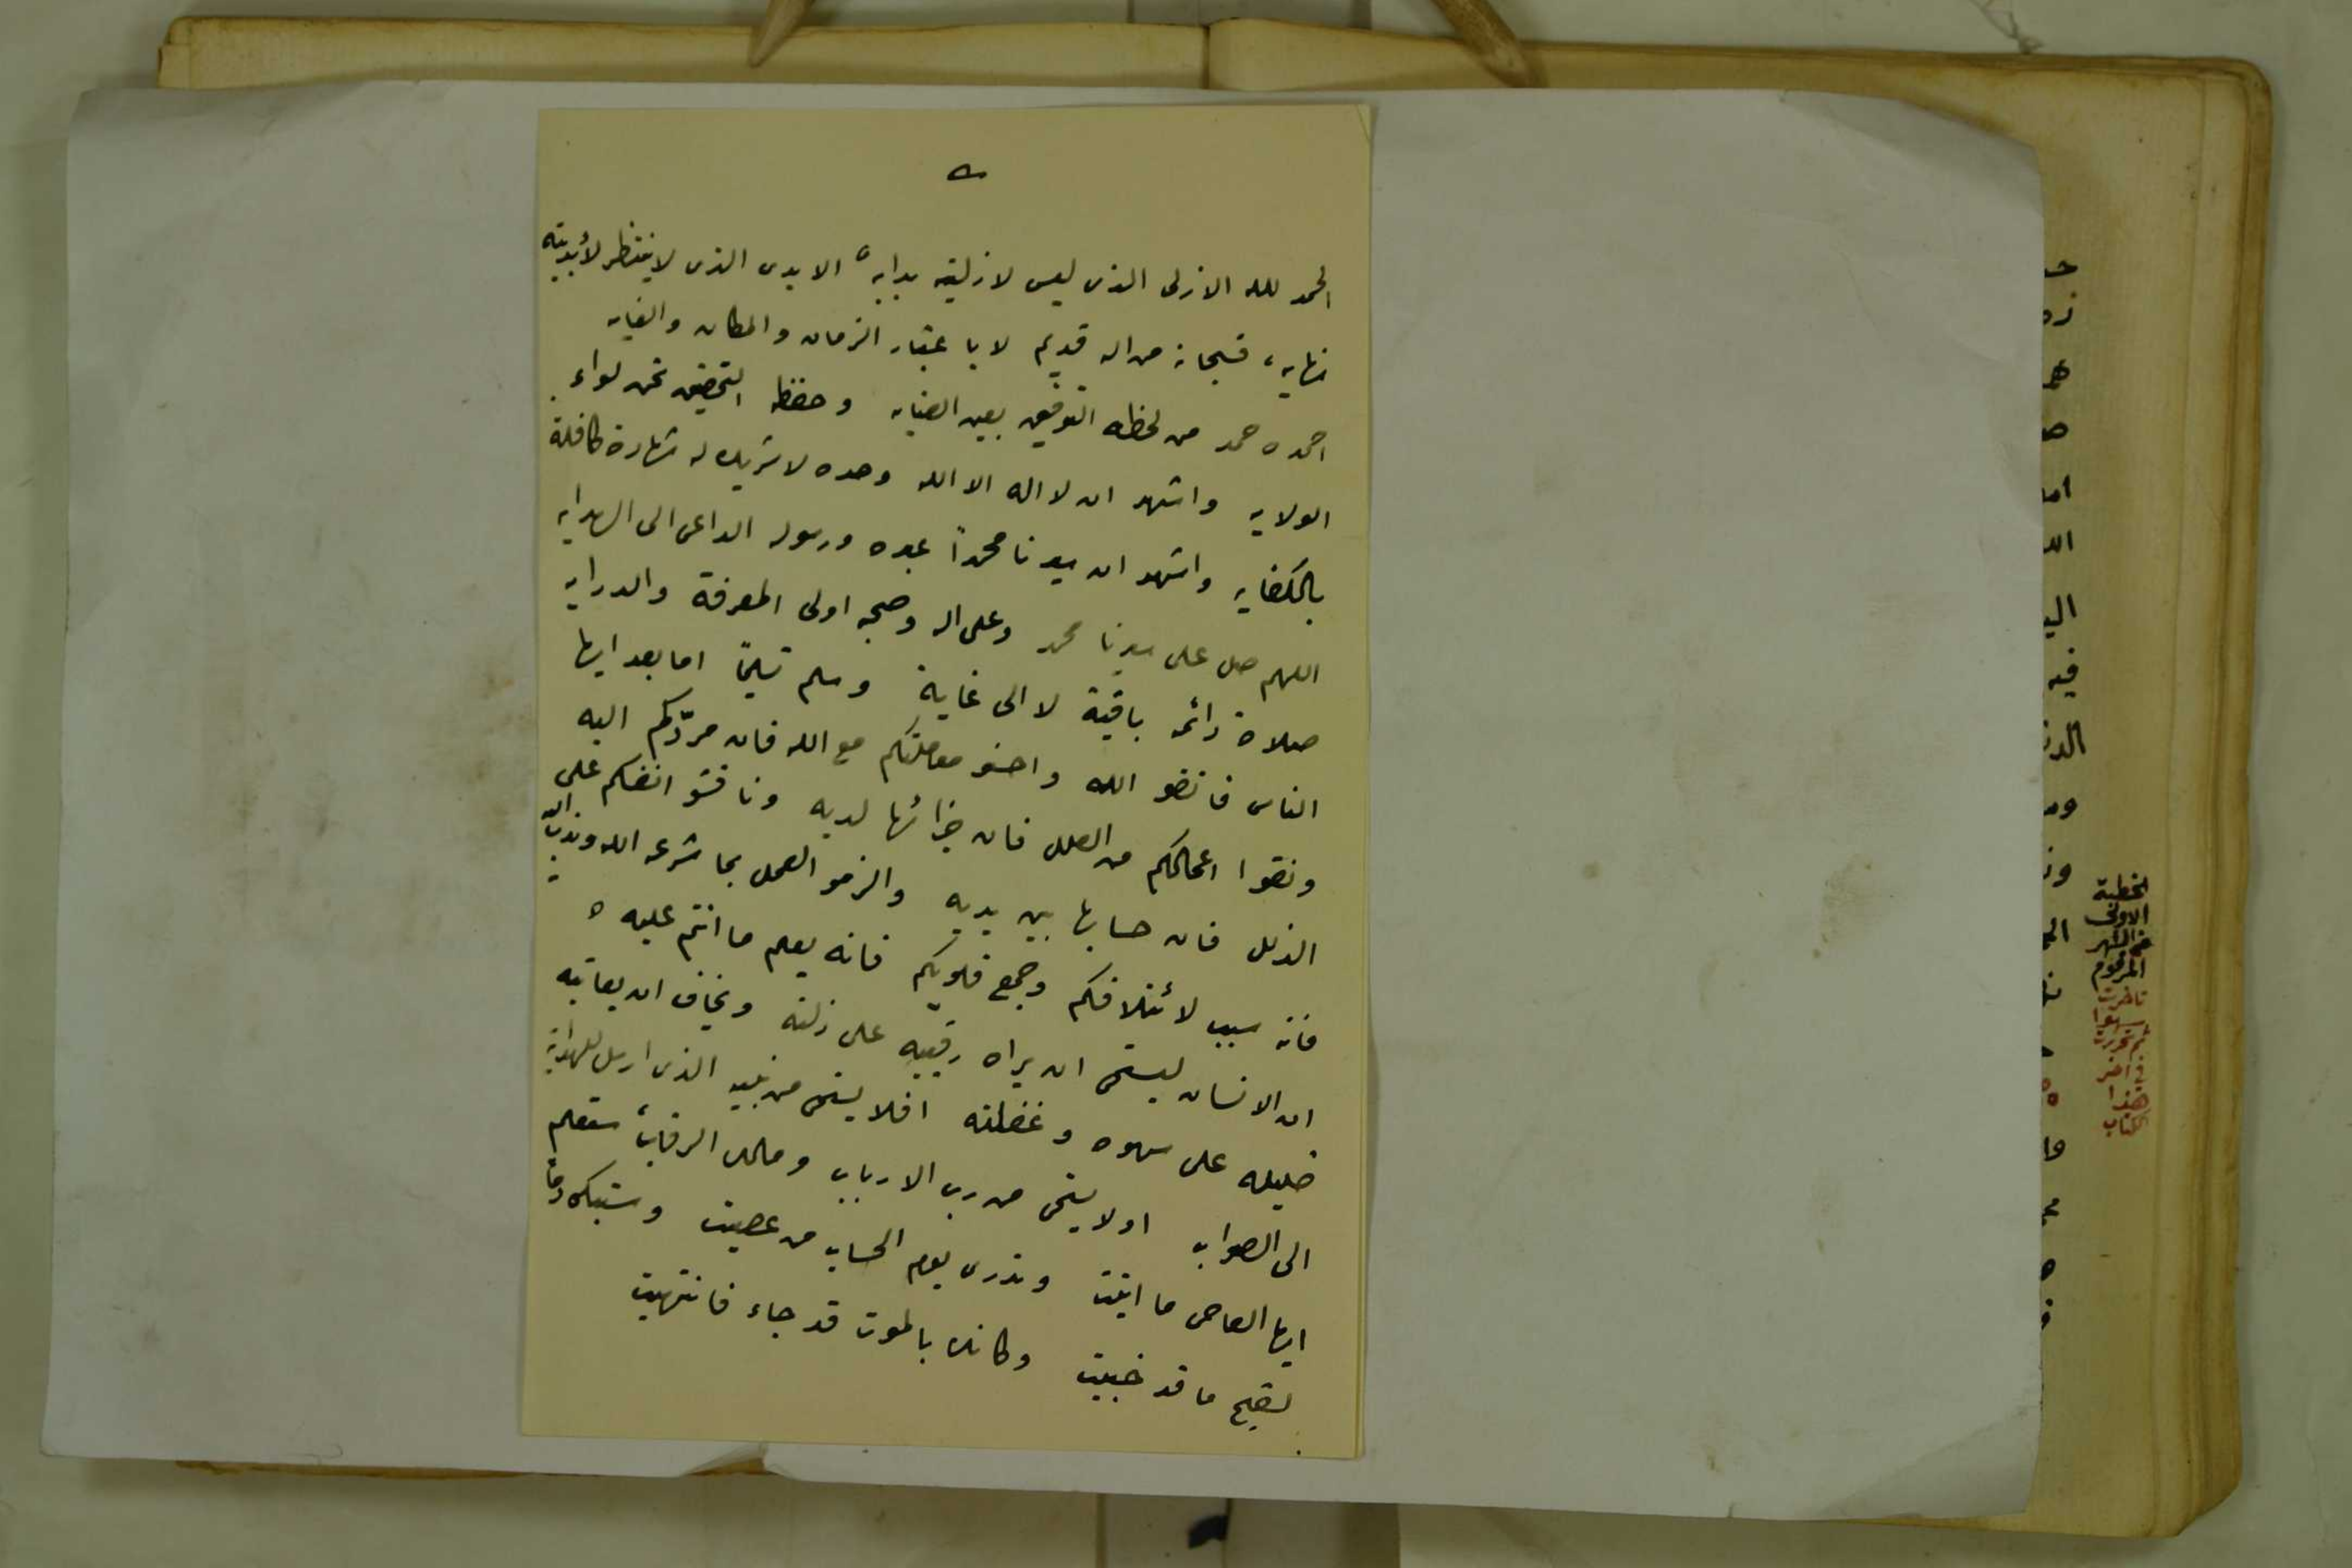 الحمد لله الازلى الذى ليس لازليته بدايه الابدى الذى لاينتظر لأبديته
نهايه، فسبحانه من اله قديم لا باعتبار الزمان والمكان والغايه
احمده حمد من لحظه التوفيق بعين العنايه وحفظه التحقيق تحت لواء
الولايه واشهد ان لا اله الا الله وحده لاشريك له شهادة كافلة
بالكفايه واشهد ان سيدنا محمداً عبده ورسوله الداعى الى الهدايه
اللهم صل على سيدنا محمد وعلى اله وصحبه اولى المعرفة والدرايه
صلاة دائمه باقية لا الى غاية وسلم تسليماً اما بعد ايها
الناس فاتقو الله واحسنو معاملتكم مع الله فان مردّكم اليه
ونقوا اعمالكم من العلل فان جزائها لديه وناقشو انفسكم على
الذلل فان حسابها بين يديه والزمو العمل بما شرعه الله وندب اليه
فانه سبب لائتلافكم وجمع قلوبكم فانه يعلم ما انتم عليه
ان الانسان ليستحى ان يراه رقيبه على زلته ويخاف ان يعاتبه
خليله على سهوه وغفلته افلا يستحى من نبيه الذى ارسل للهداية
الى الصواب اولا يستحى من رب الارباب ومالك الرقاب، ستعلم
ايها العاصى ما اتيت وتدرى يوم الحساب من عصيت وستبكى دماً
لقبيح ما قد جنيت وكانك بالموت قد جاء فانتهيت
الخطبة
الاولى
من الشهر
المرقوم
تاخرت
سهوا
تم تحررت
فى اخر
هذا
الكتاب